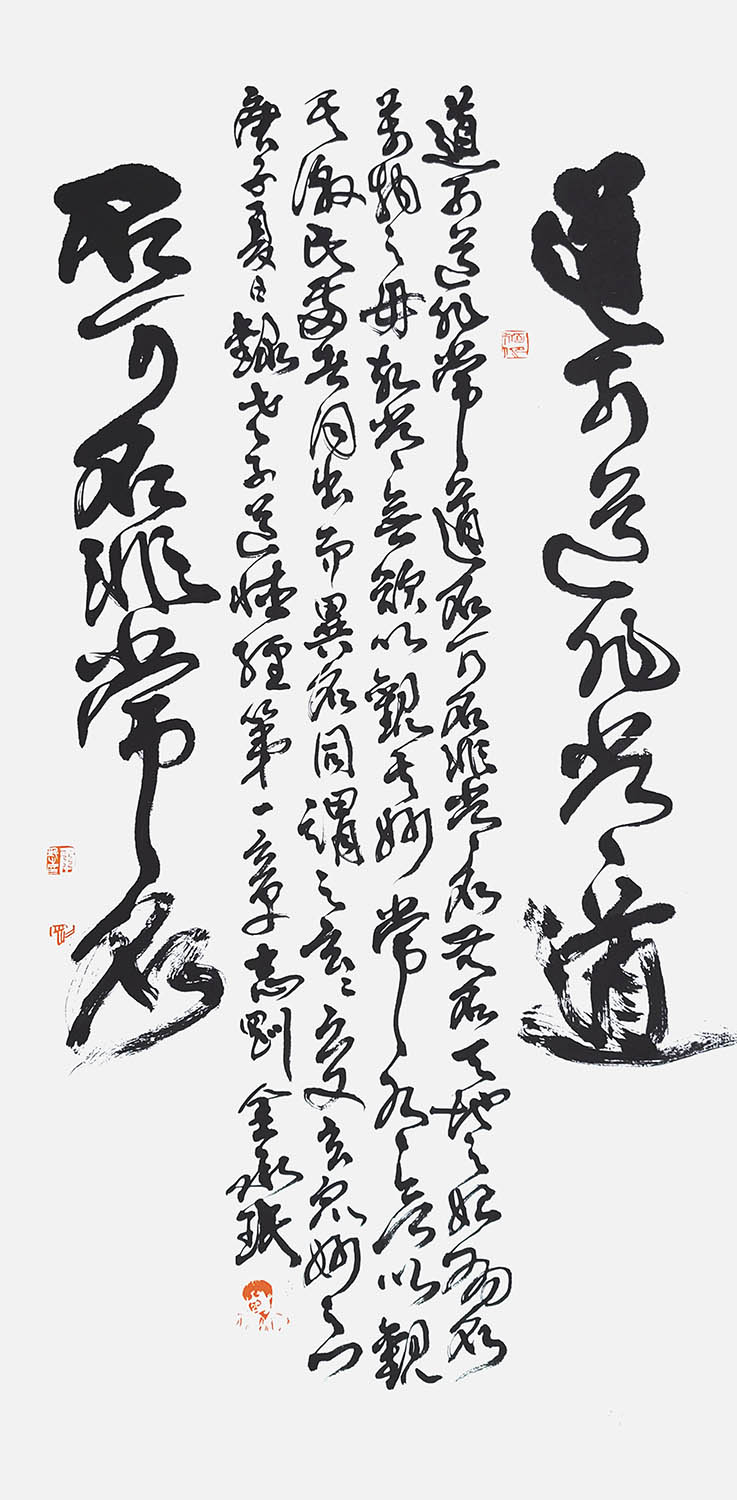 道可道非常道
道可道非常道名可名非常名无名天地之始有名
萬物之母故常無欲以觀其妙常有欲以觀
其徼此兩者同出而異名同謂之玄〻之又玄衆妙之門
庚子夏日錄老子道德經第一章志剛金承珉
名可名非常名